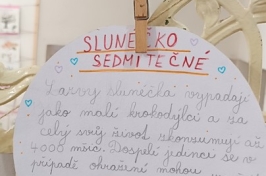 SLUNÉČKO
SEDMITEČNÉ
Larvy slunéčka vypadají
jako malí krokodýlci a za
celý svůj život zkonzumují až
4000 mšic. Dospělí jedinci se v
případě ohrožení mohou